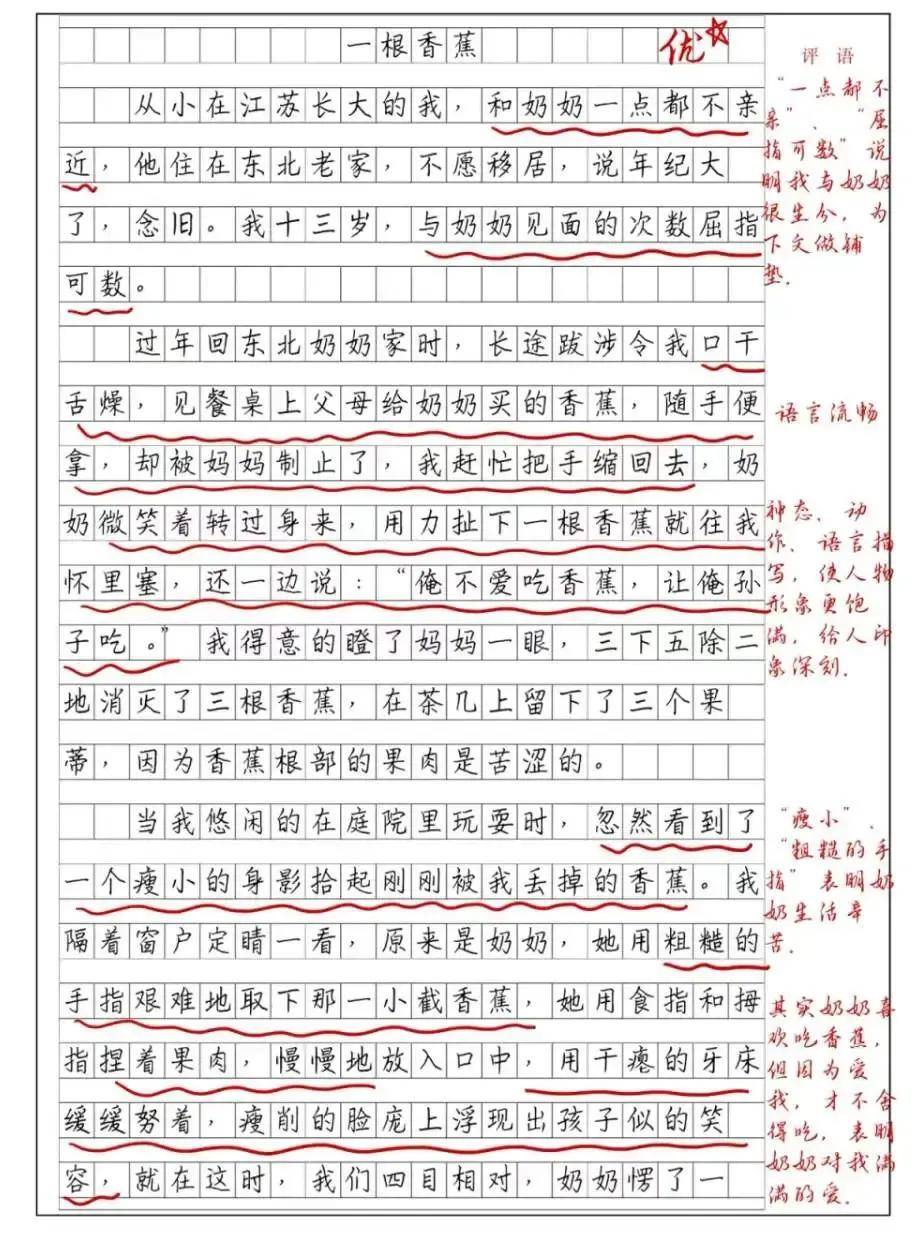 一根香蕉
优
从小在江苏长大的我，和奶奶一点都不亲
近，他住在东北老家，不愿移居，说年纪大
了，念旧。我十三岁，与奶奶见面的次数屈指
可数。
过年回东北奶奶家时，长途跋涉令我口干
舌燥，见餐桌上父母给奶奶买的香蕉，随手便
拿，却被妈妈制止了，我赶忙把手缩回去，奶
奶微笑着转过身来，用力扯下一根香蕉就往我
怀里塞，还一边说：“俺不爱吃香蕉，让俺孙
子吃。”我得意的瞪了妈妈一眼，三下五除二
地消灭了三根香蕉，在茶几上留下了三个果
蒂，因为香蕉根部的果肉是苦涩的。
当我悠闲的在庭院里玩耍时，忽然看到了
一个瘦小的身影拾起刚刚被我丢掉的香蕉。我
隔着窗户定睛一看，原来是奶奶，她用粗糙的
手指艰难地取下那一小截香蕉，她用食指和拇
指捏着果肉，慢慢地放入口中，用干瘪的牙床
缓缓努着，瘦削的脸庞上浮现出孩子似的笑
容，就在这时，我们四目相对，奶奶愣了一
评语
“一点都不
亲”、“屈
指可数”说
明我与奶奶
很生分，为
下文做铺
垫.
语言流畅
神态、动
作、语言描
写，使人物
形象更饱
满，给人印
象深刻.
“瘦小”、
“粗糙的手
指”表明奶
奶生活辛
苦.
其实奶奶喜
欢吃香蕉，
但因为爱
我，才不舍
得吃，表明
奶奶对我满
满的爱.